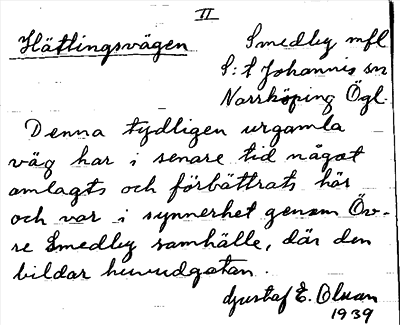 II
Hättingsvägen Smedby mfl
S:t Johannis sn
Norrköping Ögl.
Denna tydligen urgamla
väg har i senare tid något
omlagts och förbättrats här
och var i synnerhet genom Öv-
re Smedby samhälle, där den
bildar huvudgatan.
Gustaf E. Olsson
1939